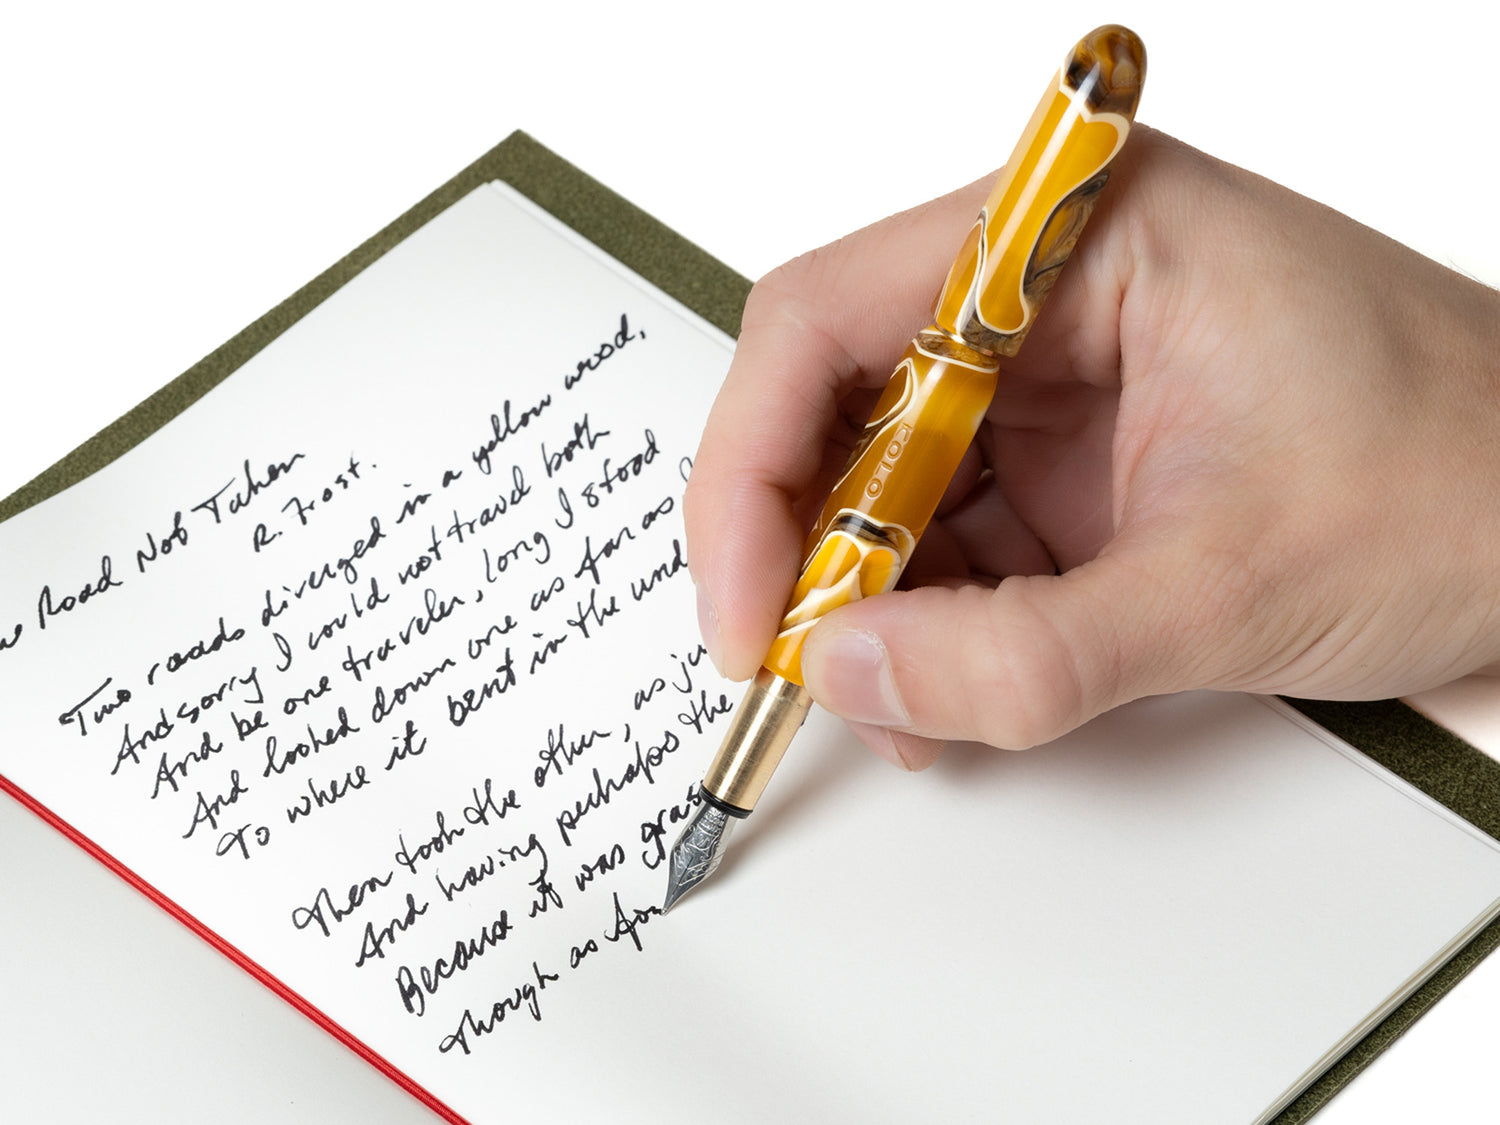 Road Not Taken
R. Frost.
Two roads diverged in a yellow wood,
And sorry I could not travel both
And be one traveler, long I stood
And looked down one as far as
To where it bent in the und
Then took the other, as ju
And having perhaps the
Because it was gras
Though as for
KOLO